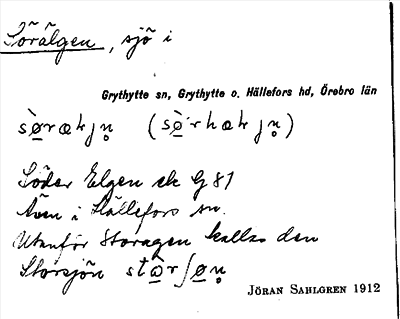 Sörälgen, sjö i
Grythytte sn, Grythytte o. Hällefors hd, Örebro län
sø̀rækjn̥ (sø̀rhækjn̥)
Söder Elgen ek G 81
Även i Hällefors sn.
Utanför Storagen kallas den
Storsjön stø̀rʃøn̥
JÖRAN SAHLGREN 1912